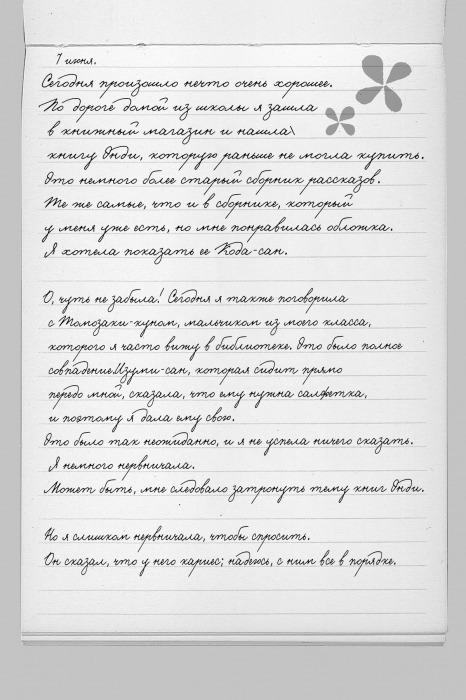 7 июня.
Сегодня произошло нечто очень хорошее.
По дороге домой из школы я зашла
в книжный магазин и нашла\
книгу Энди, которую раньше не могла купить.
Это немного более старый сборник рассказов.
Те же самые, что и в сборнике, который
у меня уже есть, но мне понравилась обложка.
Я хотела показать ее Кода-сан.
О, чуть не забыла! Сегодня я также поговорила
с Томозаки-куном, мальчиком из моего класса,
которого я часто вижу в библиотеке. Это было полное
совпадение.Изуми-сан, которая сидит прямо
передо мной, сказала, что ему нужна салфетка,
и поэтому я дала ему свою.
Это было так неожиданно, и я не успела ничего сказать.
Я немного нервничала.
Может быть, мне следовало затронуть тему книг Энди.
Но я слишком нервничала, чтобы спросить.
Он сказал, что у него кариес; надеюсь, с ним все в порядке.